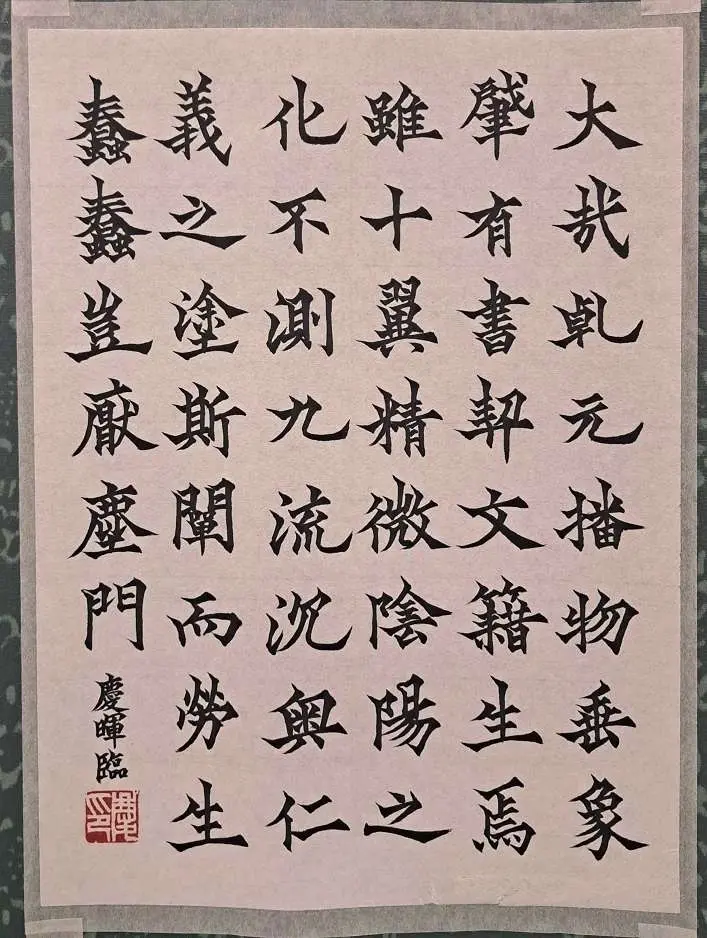 大哉乹元播物垂象
肇有書契文籍生焉
雖十翼精微陰陽之
化不測九流沉奧仁
義之塗斯闡而勞生
蠢蠢豈厭塵門
慶暉臨